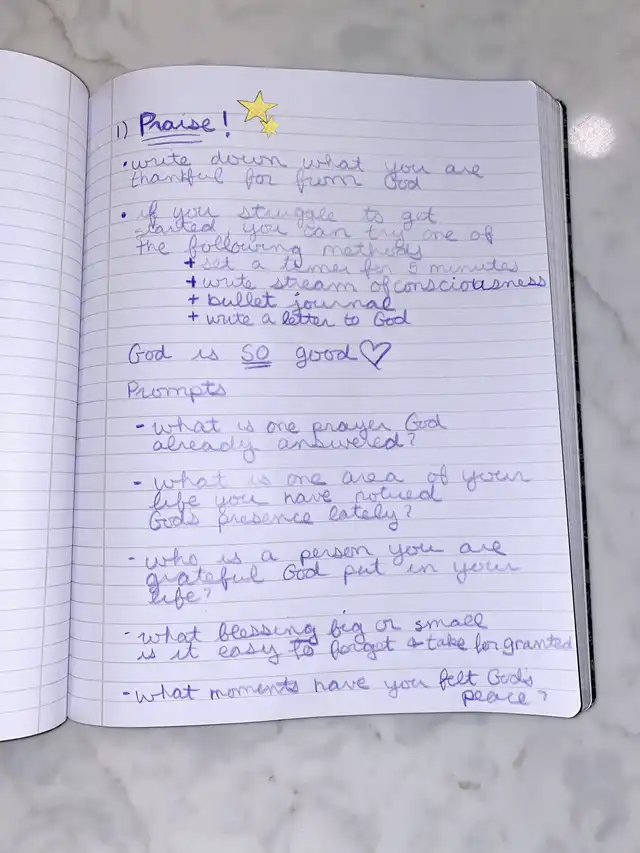 1) Praise!
• write down what you are
thankful for from God
• if you struggle to get
started, you can try one of
the following methods
+ set a timer for 5 minutes
+ write stream of consciousness
+ bullet journal
+ write a letter to God
God is SO good ♡
Prompts
- what is one prayer God
already answered?
- what is one area of your
life you have noticed
God's presence lately?
- who is a person you are
grateful God put in your
life?
- what blessing big or small
is it easy to forget + take for granted
- what moments have you felt God's
peace?